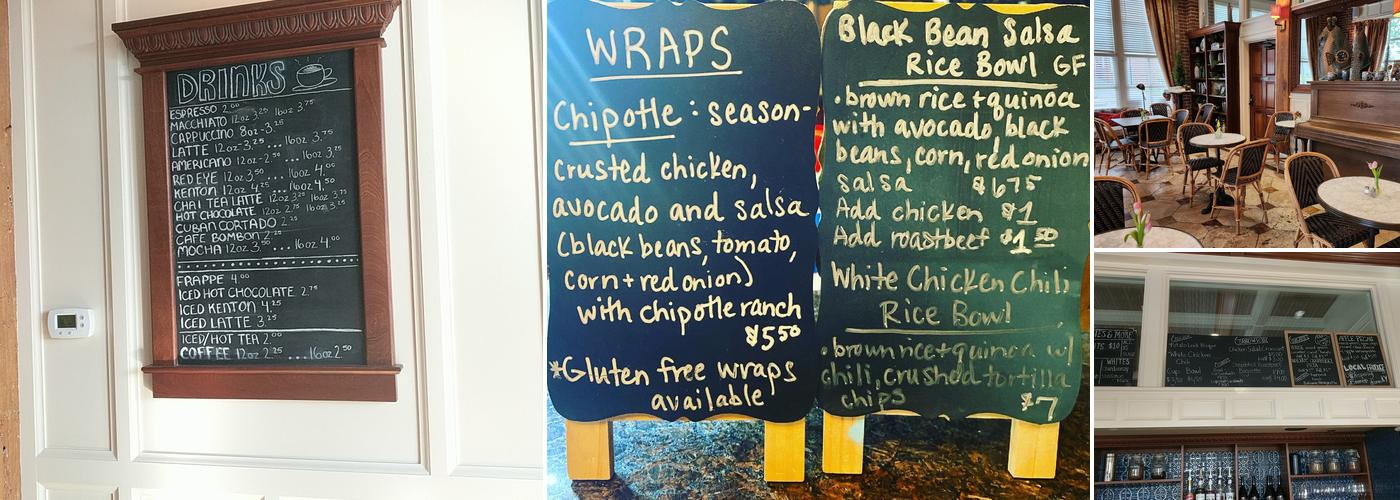 DRINKS
ESPRESSO 2.00
MACCHIATO 12oz 3.20 16oz 3.75
CAPPUCCINO 8oz-3.25
LATTE 12oz-3.25 ... 16oz 3.75
AMERICANO 12oz-2.50 ... 16oz 3.25
RED EYE 12oz 3.50 ... 16oz 4.00
KENTON 12oz 4.25 ... 16oz 4.50
CHAI TEA LATTE 12oz 3.25 16oz 3.75
HOT CHOCOLATE 12oz 2.75 16oz 3.25
CUBAN CORTADO 2.25
CAFE BOMBON 2.25
MOCHA 12oz 3.50 ... 16oz 4.00
FRAPPE 4.00
ICED HOT CHOCOLATE 2.75
ICED KENTON 4.25
ICED LATTE 3.25
ICED/HOT TEA 2.00
COFFEE 12oz 2.25 .... 16oz 2.50
WRAPS
Chipotle: season-
crusted chicken,
avocado and salsa
(black beans, tomato,
corn + red onion)
with chipotle ranch
$5.50
*Gluten free wraps
available
Black Bean Salsa
Rice Bowl GF
• brown rice + quinoa
with avocado, black
beans, corn, red onion
salsa $6.75
Add chicken $1
Add roastbeef $1.50
White Chicken Chili
Rice Bowl
• brown rice + quinoa w/
chili, crushed tortilla
chips $7
& MORE
WHITES
White Chicken
Chili
Cup Bowl
Baguette
LOCAL